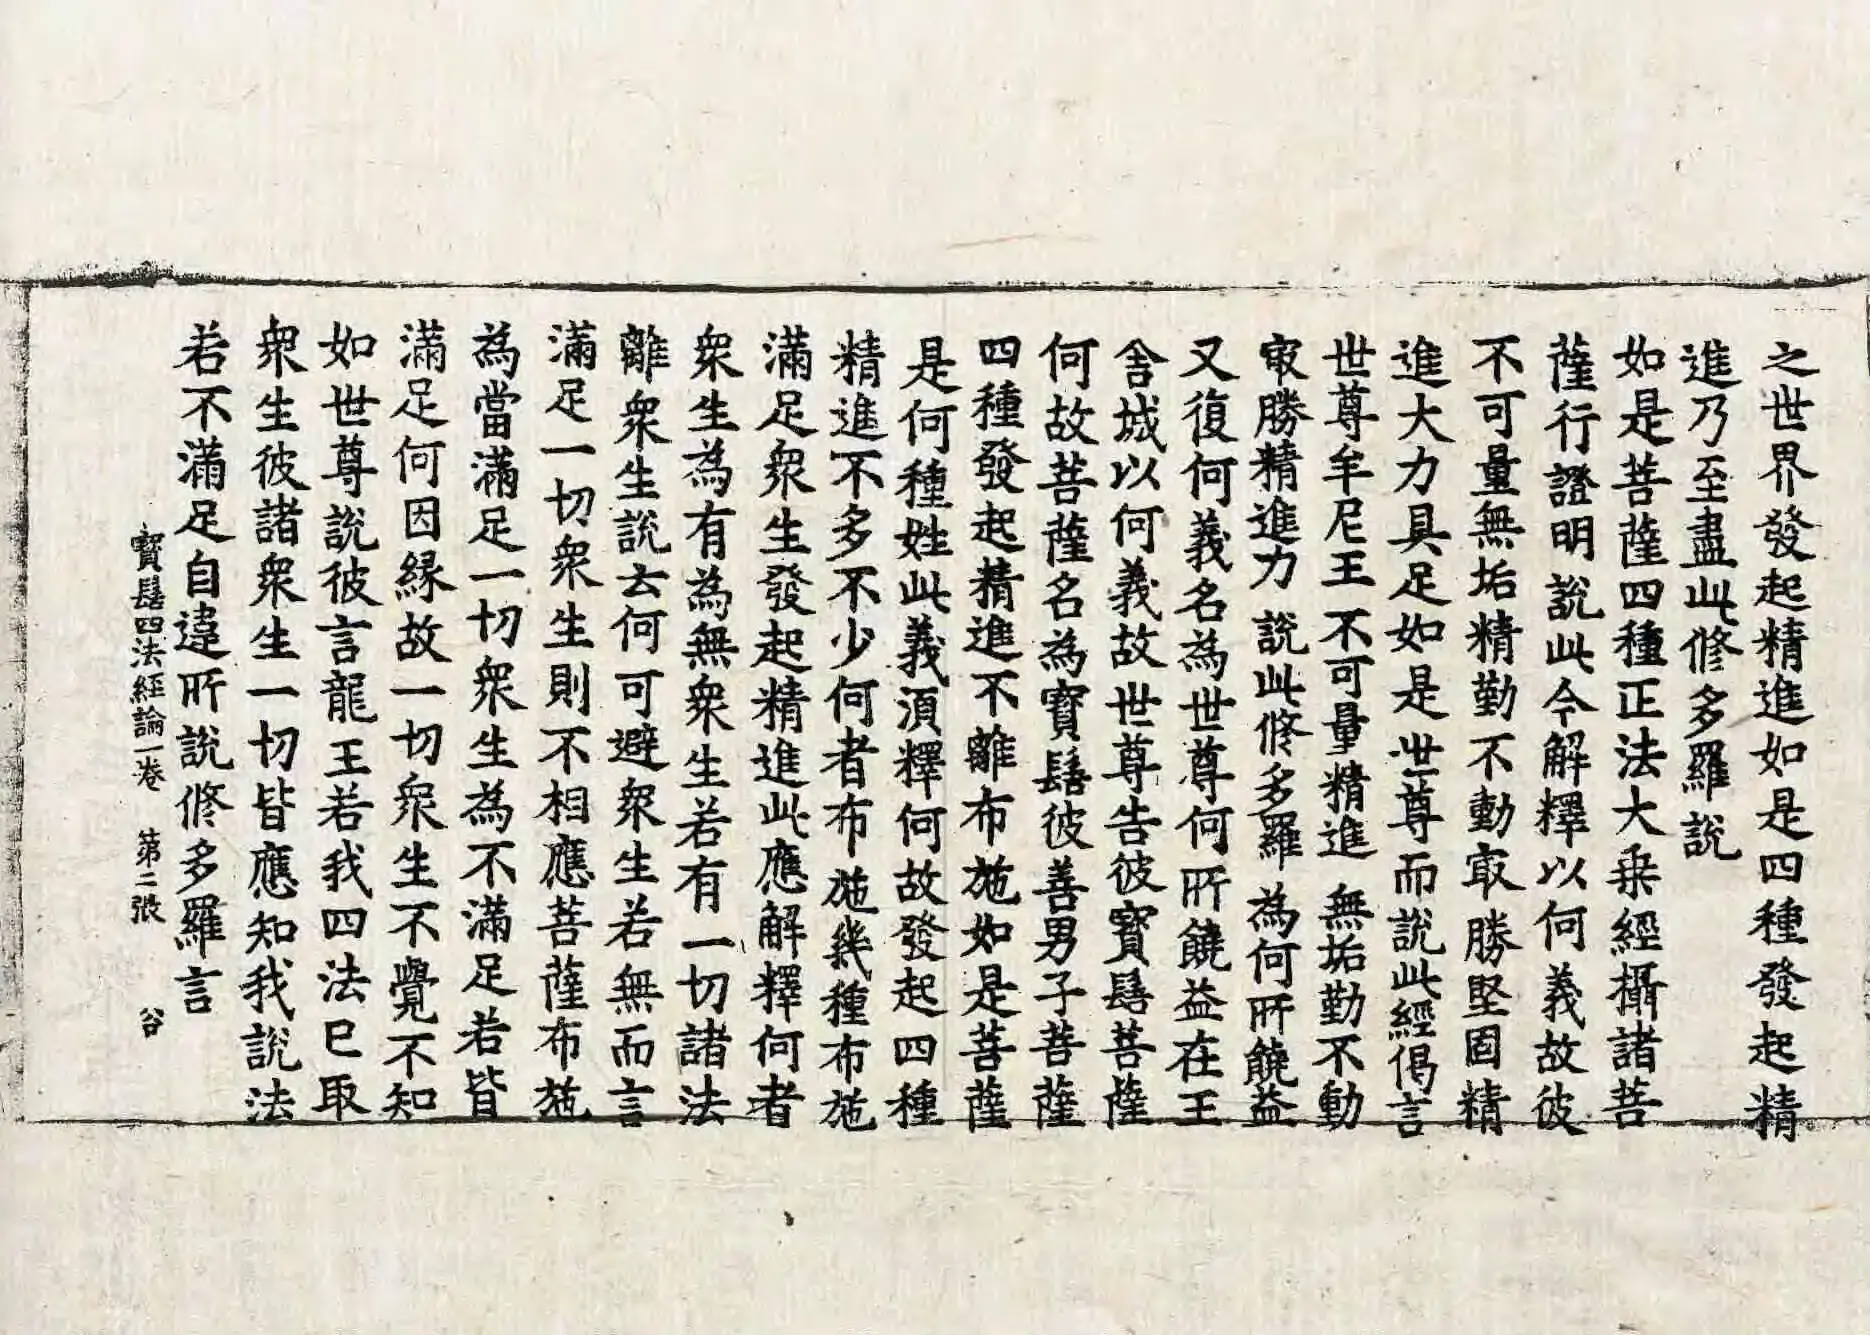 之世界發起精進如是四種發起精
進乃至盡此修多羅說
如是菩薩四種正法大乗經攝諸菩
薩行證明說此今解釋以何義故彼
不可量無垢精勤不動㝡勝堅固精
進大力具足如是世尊而說此經偈言
世尊牟尼王 不可量精進 無垢勤不動
㝡勝精進力 說此修多羅 為何所饒益
又復何義名為世尊何所饒益在王
舍城以何義故世尊告彼寶髻菩薩
何故菩薩名為寶髻彼善男子菩薩
四種發起精進不離布施如是菩薩
是何種姓此義湏釋何故發起四種
精進不多不少何者布施幾種布施
滿足衆生發起精進此應解釋何者
衆生為有為無衆生若有一切諸法
離衆生說去何可避衆生若無而言
滿足一切衆生則不相應菩薩布施
為當滿足一切衆生為不滿足若皆
滿足何因縁故一切衆生不覺不知
如世尊說彼言龍王若我四法巳取
衆生彼諸衆生一切皆應知我說法
若不滿足自違所說修多羅言
寶髻四法經論一卷 第二張 谷